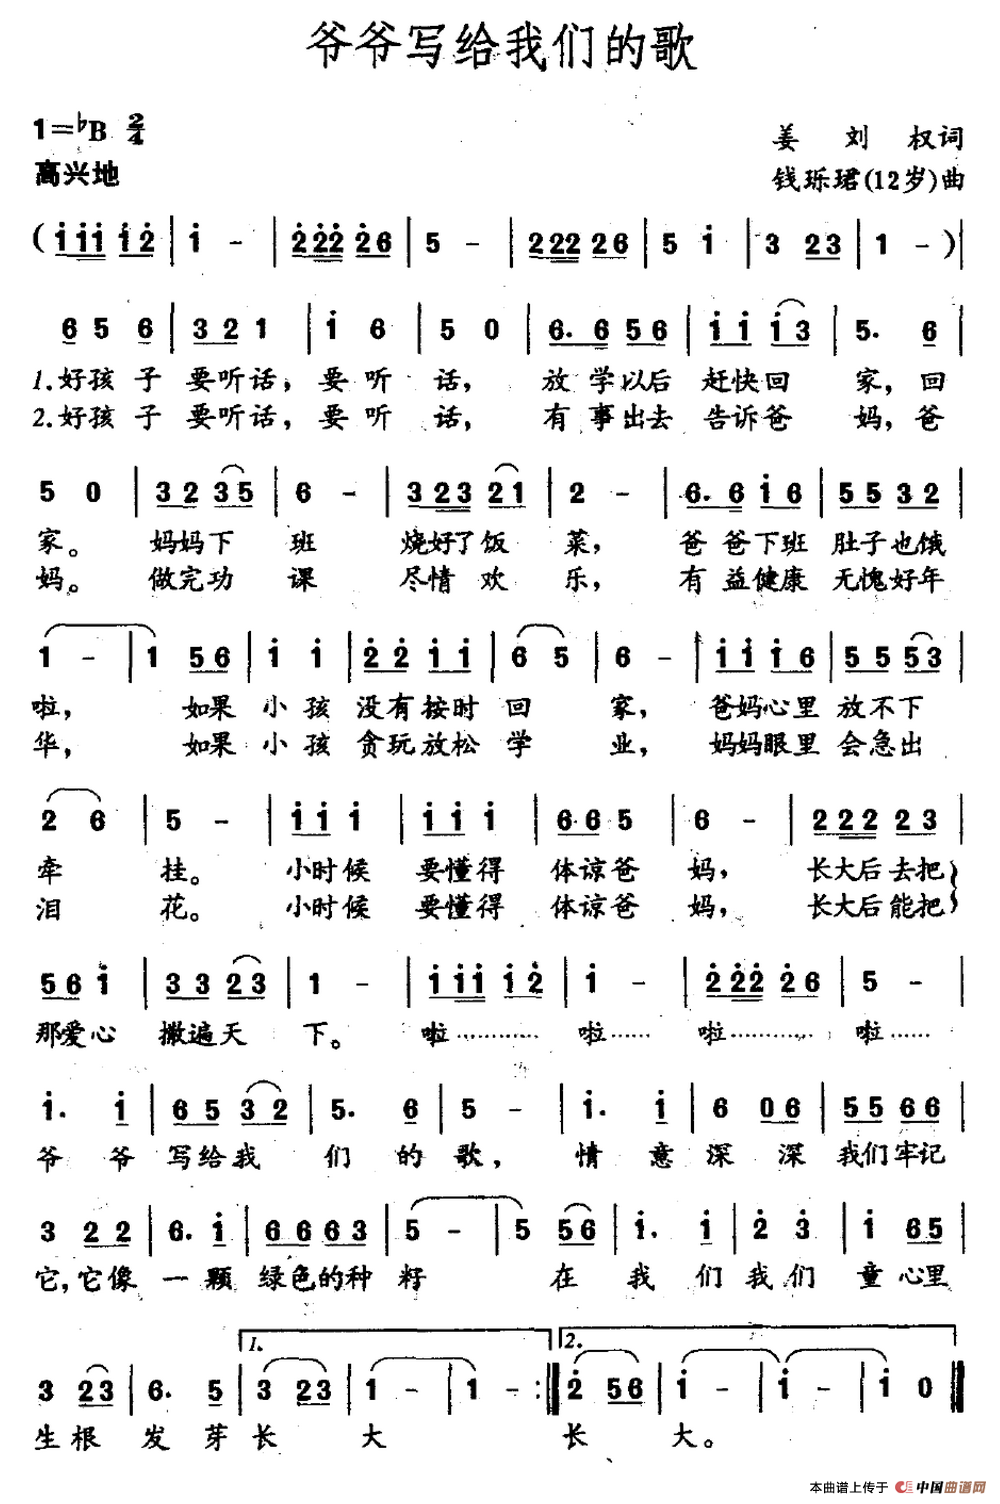 爷爷写给我们的歌
1=♭B 2/4
姜 刘 权词
高兴地
钱珎珺(12岁)曲
( 1 1 1 1 2 | 1 - | 2 2 2 2 6 | 5 - | 2 2 2 2 6 | 5 1 | 3 2 3 | 1 - ) |
6 5 6 | 3 2 1 | 1 6 | 5 0 | 6. 6 5 6 | 1 1 1 3 | 5. 6 |
1.好孩 子 要听话, 要 听 话, 放 学以后 赶快回 家, 回
2.好孩 子 要听话, 要 听 话, 有 事出去 告诉爸 妈, 爸
5 0 | 3 2 3 5 | 6 - | 3 2 3 2 1 | 2 - | 6. 6 1 6 | 5 5 3 2 |
家。 妈妈下 班 烧好了饭 菜, 爸 爸下班 肚子也饿
妈。 做完功 课 尽情 欢 乐, 有 益健康 无愧好年
1 - | 1 5 6 | 1 1 | 2 2 1 1 | 6 5 | 6 - | 1 1 1 6 | 5 5 5 3 |
啦, 如果 小 孩 没有按时 回 家, 爸妈心里 放不下
华, 如果 小 孩 贪玩放松 学 业, 妈妈眼里 会急出
2 6 | 5 - | 1 1 1 | 1 1 1 | 6 6 5 | 6 - | 2 2 2 2 3 |
牵 挂。 小时候 要懂得 体谅爸 妈, 长大后去把
泪 花。 小时候 要懂得 体谅爸 妈, 长大后能把
5 6 1 | 3 3 2 3 | 1 - | 1 1 1 1 2 | 1 - | 2 2 2 2 6 | 5 - |
那爱心 撒遍天 下。 啦………… 啦…… 啦………… 啦……
1. 1 | 6 5 3 2 | 5. 6 | 5 - | 1. 1 | 6 0 6 | 5 5 6 6 |
爷 爷 写给我 们 的 歌, 情 意 深 深 我们牢记
3 2 2 | 6. 1 | 6 6 6 3 | 5 - | 5 5 6 | 1. 1 | 2 3 | 1 6 5 |
它,它像 一 颗 绿色的种 籽 在 我 们 我 们 童 心里
1. 2.
3 2 3 | 6. 5 | 3 2 3 | 1 - | 1 - :| 2 5 6 | 1 - | 1 - | 1 0 ‖
生 根 发 芽 长 大 长 大。
本曲谱上传于 中国曲谱网